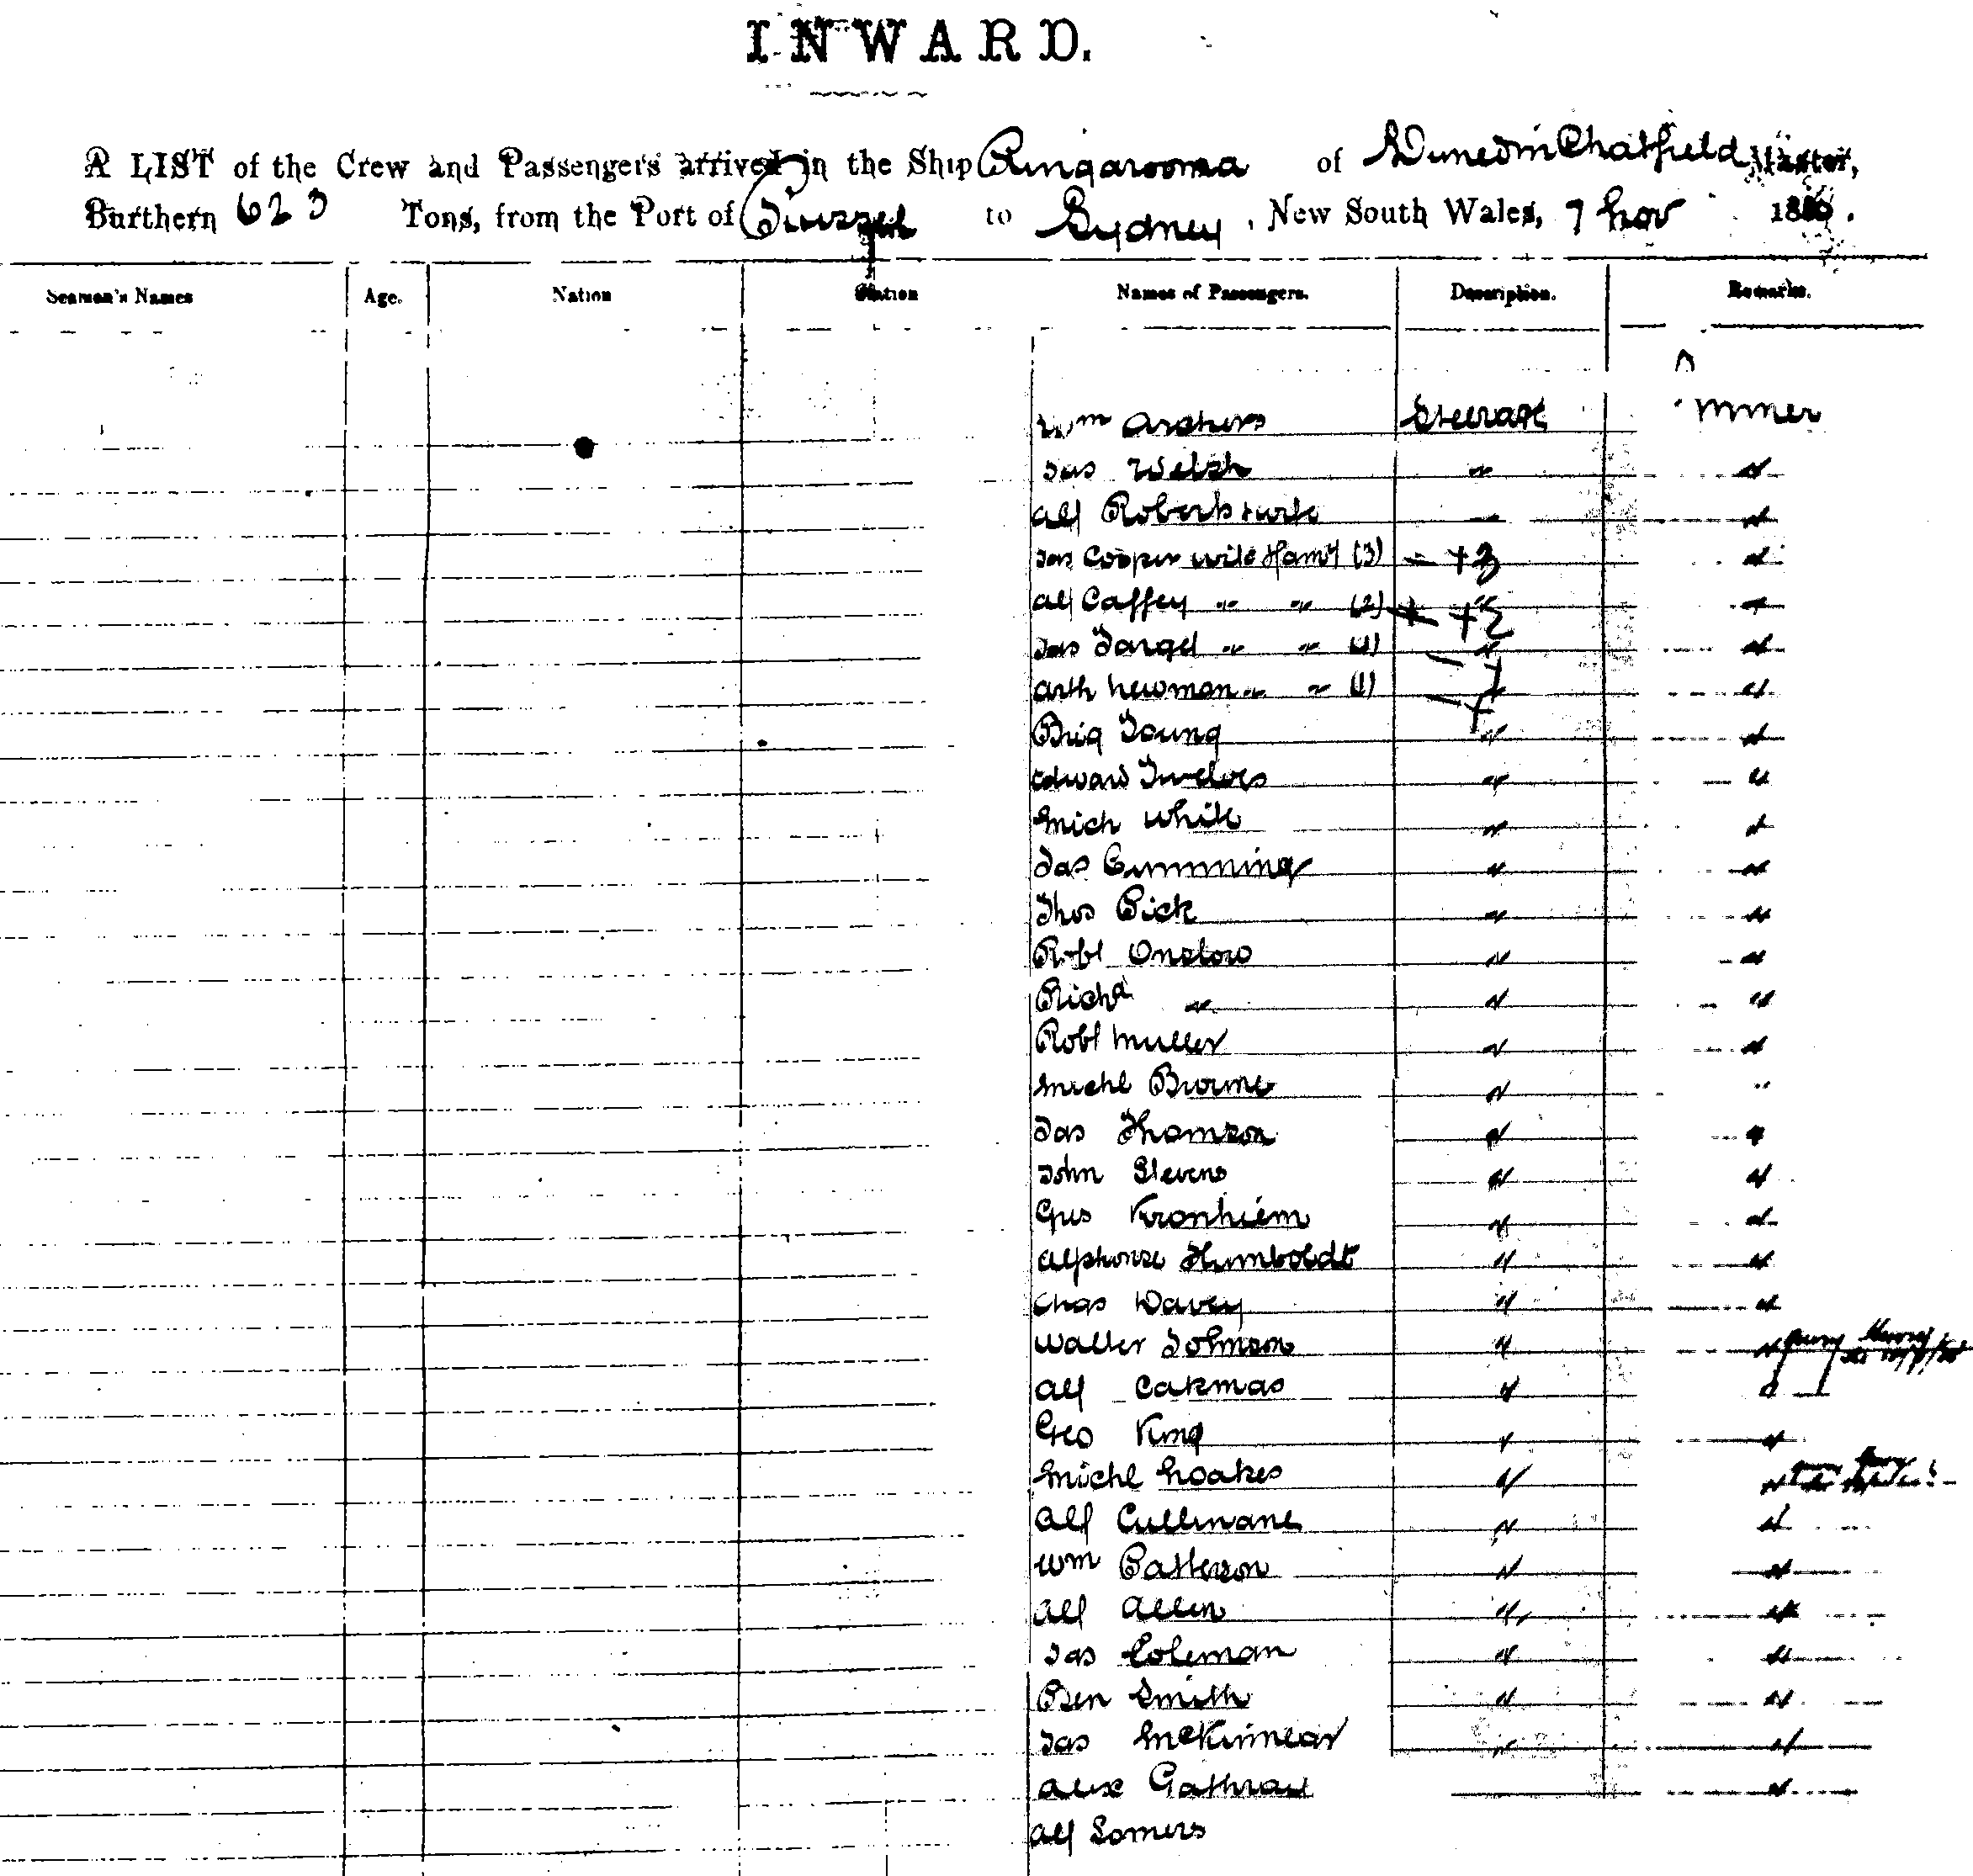 INWARD.
A LIST of the Crew and Passengers arrived in the Ship Ringarooma of Dunedin Chatfield Master,
Burthern 623 Tons, from the Port of to Sydney, New South Wales, 7 Nov 18
Seamen's Names Age. Nation Station Names of Passengers. Description. Remarks.
Wm Archers Steerage
Jas Welsh "
Alf Roberts & wife " "
Jas Cooper wife & famy (3) " +3 "
Alf Caffey " " (2) +2 "
Jas Target " " (1) " "
Arth Newman " " (1) " "
Brig Young " "
Edward Twelves " "
Mich White " "
Jas Cumming " "
Thos Pick " "
Robt Onslow " "
Richd " " "
Robt Muller " "
Michl Browne " "
Jas Thomson " "
John Stevens " "
Gus Kronhiem " "
Alphonse Humboldt " "
Chas Davey " "
Walter Johnson " "
Alf Oakmas " "
Geo King " "
Michl Noakes " "
Alf Cullinane " "
Wm Patterson " "
Alf Allen " "
Jas Coleman " "
Ben Smith " "
Jas McKinnear " "
Alex "
Alf Somers